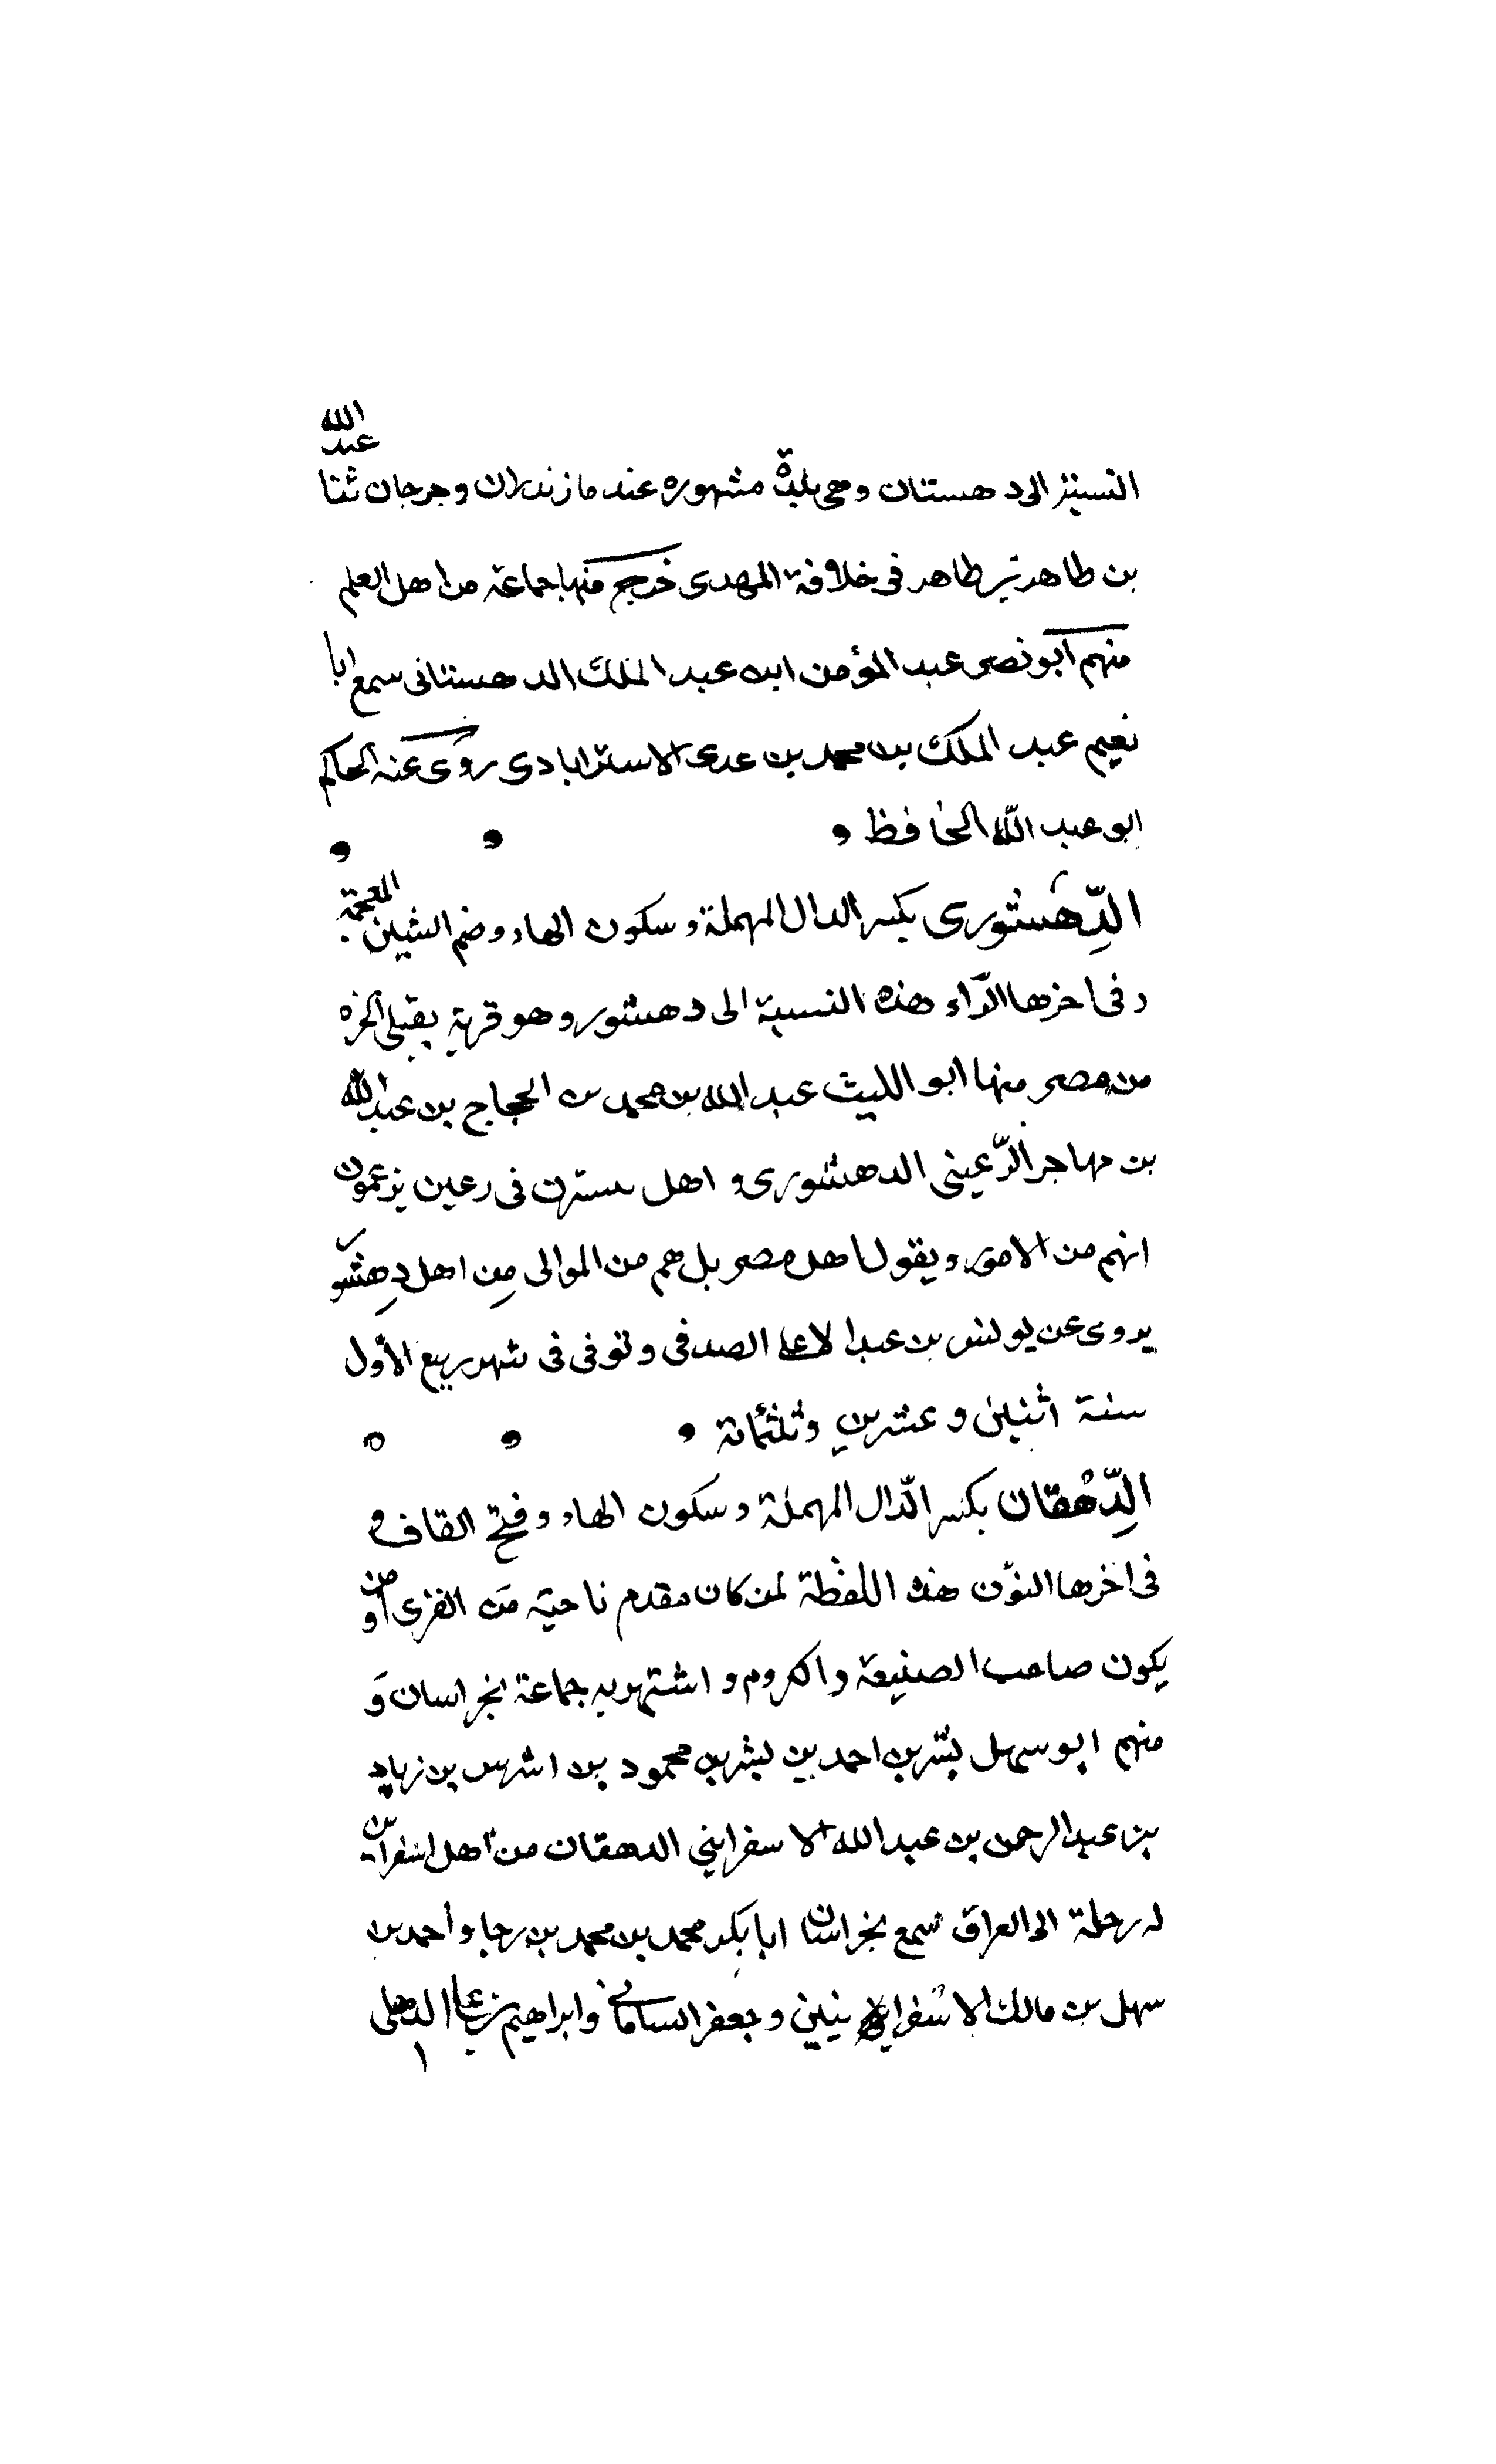 النسبة الى دهستان وهى بلدة مشهوره عند مازندران وجرجان ثنا عبد الله
بن طاهر بن طاهر فى خلافة المهدى خرج منها جماعة من اهل العلم
منهم ابو نصر عبد المؤمن ابن عبد الملك الدهستانى سمع ابا
نعيم عبد الملك بن محمد بن عدى الاسترابادى روى عنه الحاكم
ابو عبد الله الحافظ
الدِّهشتورى بكسر الدال المهملة وسكون الهاء وضم الشين المعجمة
وفى اخرها الرّاء هذه النسبة الى دهشور وهو قرية بقبلى الجزه
من مصر منها ابو الليث عبد الله بن محمد بن الحجاج بن عبد الله
بن مهاجر الرّعينى الدهشورى و اهل فى رعين يزعمون
انهم من ويقول اهل مصر بل هم من الموالى مِن اهل دِهشو
يروى عن يونس بن عبد الاعلى الصدفى وتوفى فى شهر ربيع الأول
سنة اثنين وعشرين وثلثمائة
الدِّهْقان بكسر الدّال المهملة وسكون الهاء وفتح القاف و
فى اخرها النوّن هذه اللفظة لمن كان مقدم ناحية من القرى أو من
يكون صاحب الضيعة والكروم واشتهر به جماعة بخراسان وَ
منهم ابو سهل بشر بن احمد بن بشر بن محمود بن اشرس بن زياد
بن عبد الرحمن بن عبد الله الاسفراينى الدهقان من اهل اسفراين
له رحلة الى العراق سمع بخراسان ابا بكر محمد بن محمد بن رجا وأحمد بن
سهل بن مالك الاسفراينيين وجعفر الساماني وابراهيم بن على الذهلى